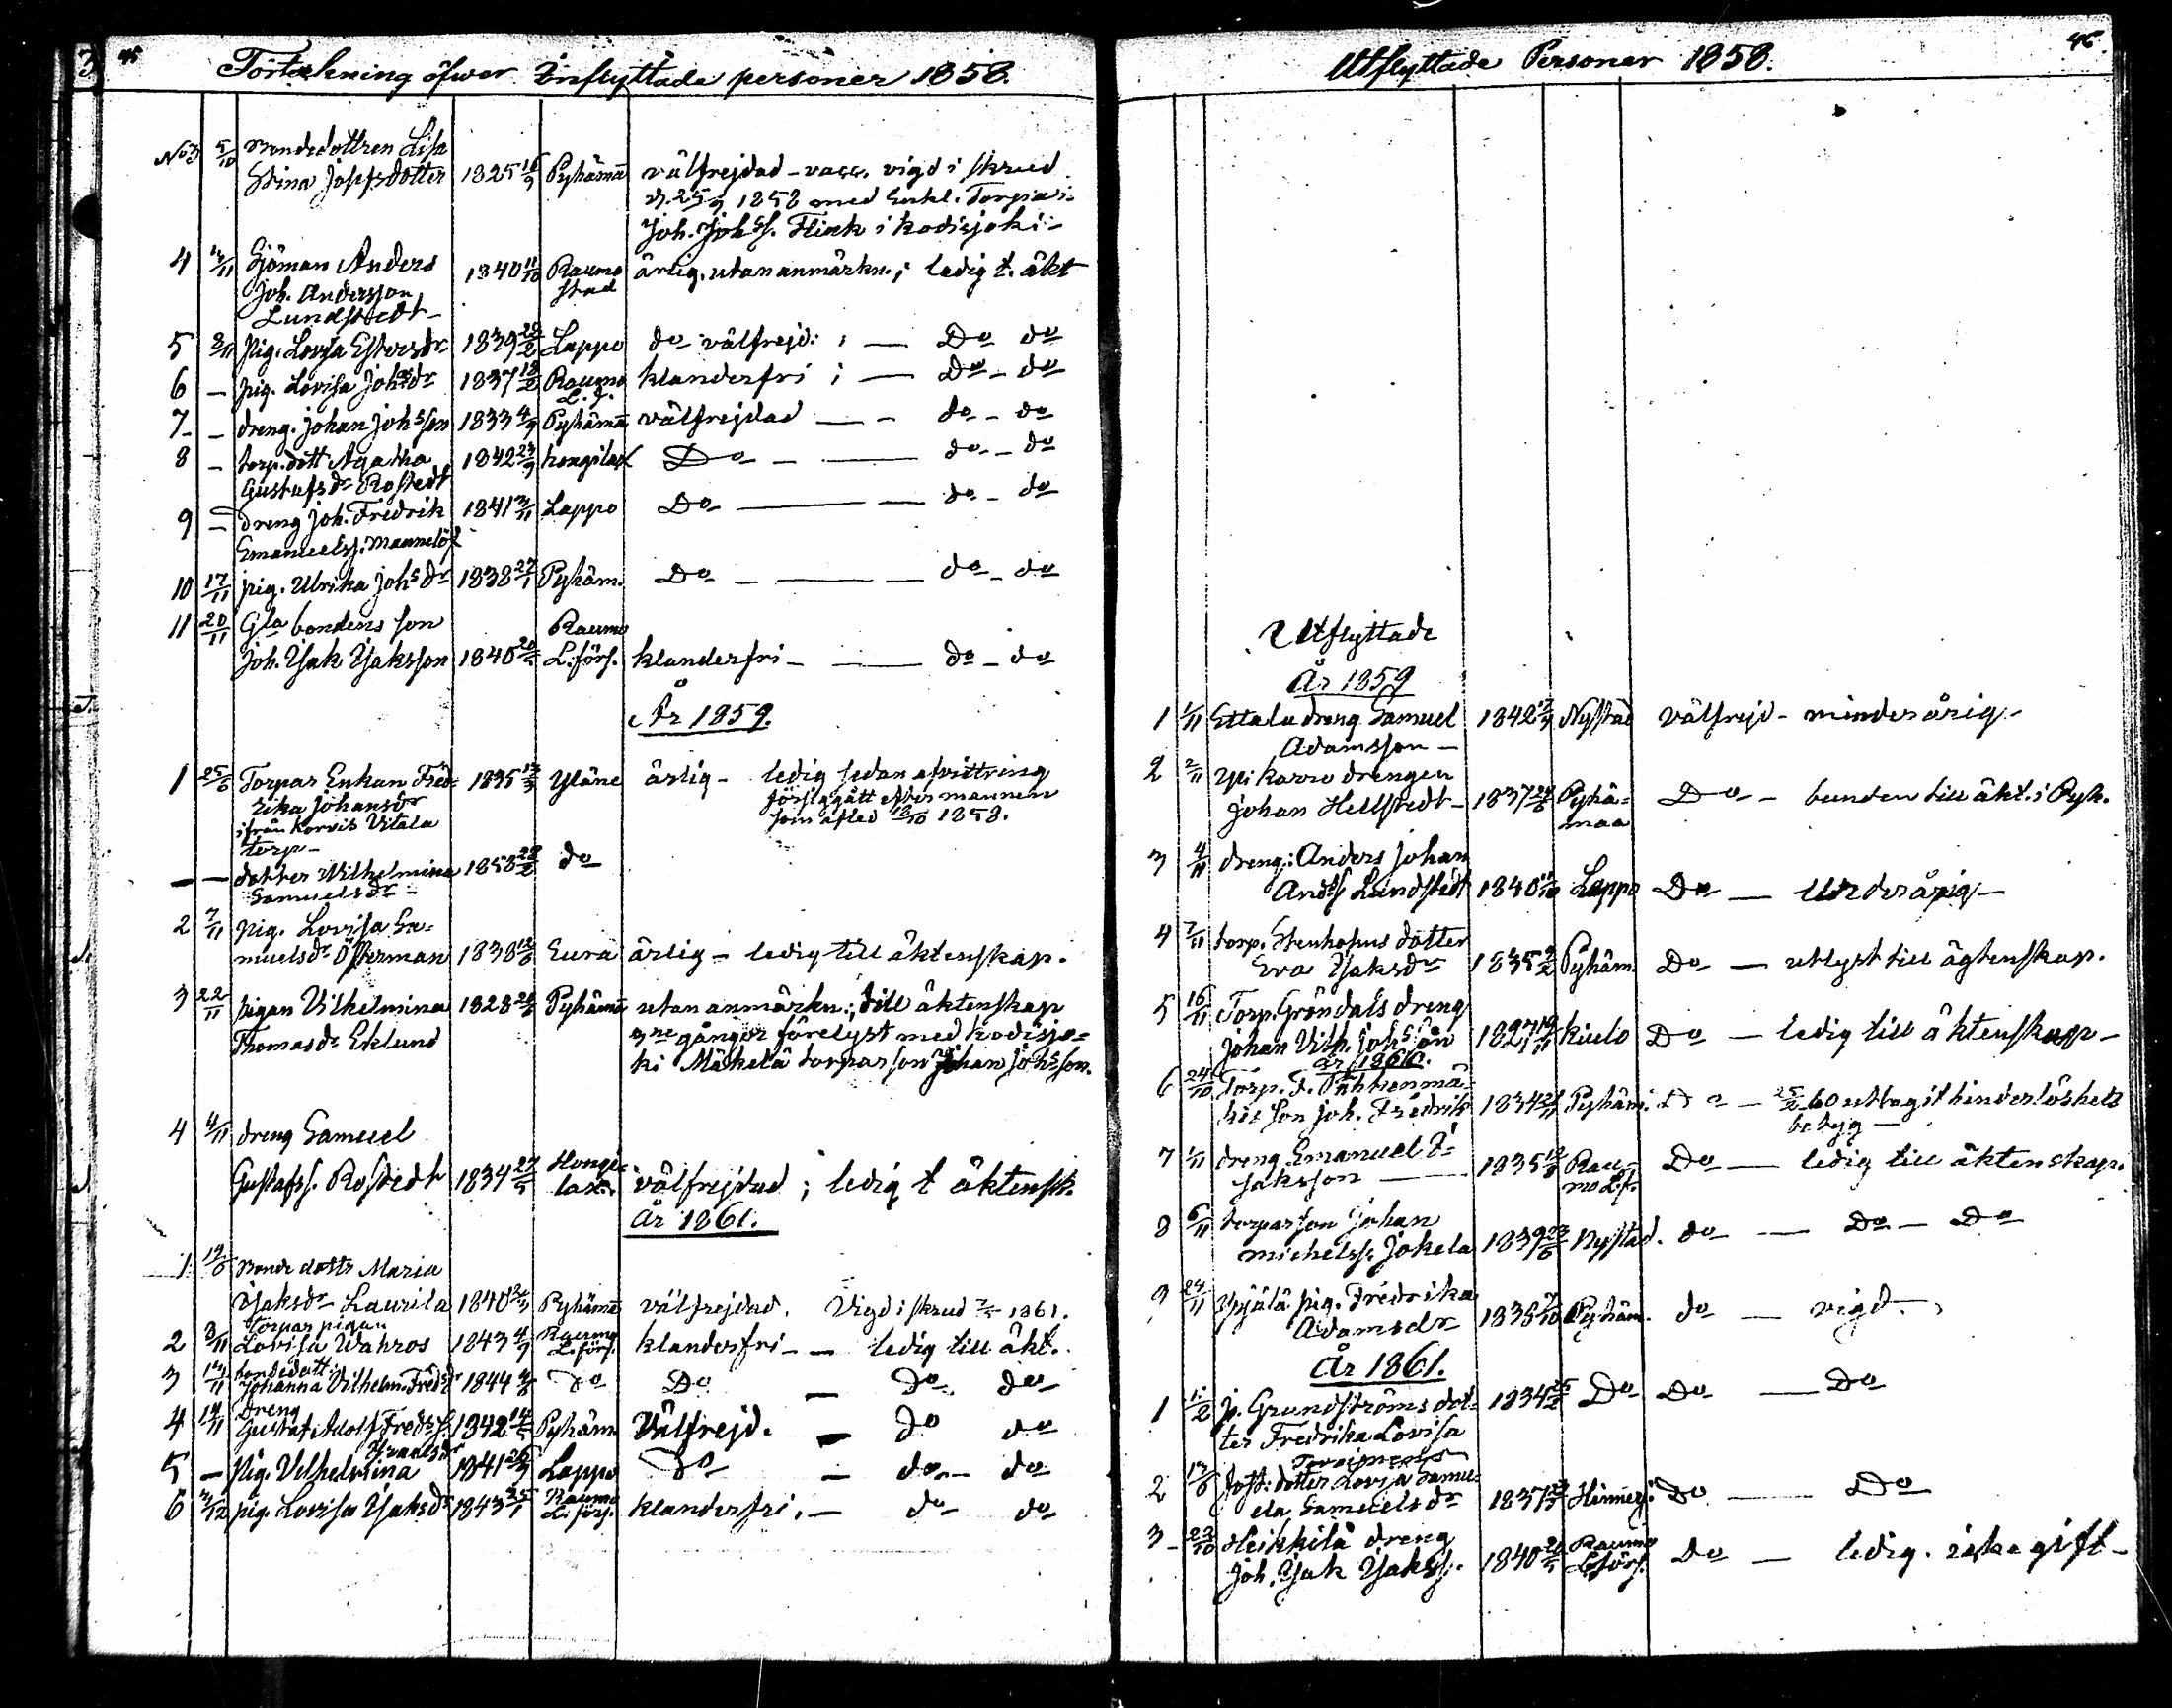 45
Förtekning öfwer Inflyttade personer 1858.
No 3 5/10 Bondedottren Lisa
Stina Josefsdotter 1825 16/9 Pyhämaa välfrejdad - vacc. vigd i skrud
d. 25/9 1858 med Enkl. Torpar
Joh. Johss. Flink i kodisjoki -
4 /11 Sjöman Anders 1840 11/10 Raumo ärlig, utan anmärkn.; ledig t. äkt
Joh. Andersson stad
Lundstedt -
5 8/11 pig. Lovisa Estersdr 1839 /2 Lappo do välfrejd: ; — Do do
6 — pig. Lovisa Johsdr 1837 18/2 Raumo klanderfri ; — Do - do
L. f.
7 - — dreng. Johan Johsson 1833 4/9 Pyhämaa välfrejdad — - do - do
8 — torp. dott Agatha 1842 23/9 hongilax Do - — do - do
Gustafsdr Rostedt
9 — dreng Joh. Fredrik 1841 3/11 Lappo Do — do - do
Emanuelss. Mannelöf
10 17/11 pig. Ulrika Johsdr 1838 27/1 Pyhäm. Do - — do - do
11 20/11 Gla bondens son Raumo
Joh. Isak Isaksson 1840 20/5 L:förs. klanderfri - — do - do
År 1859.
1 25/6 Torpar Enkan Fred- 1835 13/3 Yläne ärlig - ledig sedan afvittring
rika Johansdr försiggått efter mannen
ifrån korvis Vitala som afled 12/10 1858.
torp -
— — dotter Wilhelmina 1858 28/2 do
Samuelsdr -
2 7/11 pig. Lovisa Sa-
muelsdr Österman 1838 12/6 Eura ärlig - ledig till äktenskap.
3 22/11 pigan Vilhelmina 1828 Pyhämaa utan anmärkn.; till äktenskap
Thomasdr Eklund 3ne gånger förelyst med kodisjo-
ki Mäkelä torparson Johan Johsson.
4 4/11 dreng Samuel
Gustafss. Rostedt 1834 27/5 Hongi- lax. välfrejdad ; ledig t äktensk.
År 1861.
1 12/6 Bonde dottr Maria
Isaksdr Laurila 1840 Pyhämaa välfrejdad. Vigd i skrud 1861.
Torpar pigan
2 8/11 Lovisa Wahros 1843 4/9 Raumo L:förs. klanderfri - — ledig till äkt.
3 14/11 bondedott. Johanna Vilhelm. Fredsdr 1844 4/6 do Do — Do do
4 14/11 Dreng Gustaf Adolf Fredrs. 1842 14/5 Pyhäm Välfrejd. — do do
Israelsdr
5 — pig. Vilhelmina 1841 26/9 Lappo Do — do - do
6 2/12 pig. Lovisa Isaksdr 1843 25/1 Raumo L:förs. klanderfri, — do do
46.
Utflyttade Personer 1858.
Utflyttade
År 1859
1 1/11 Ettala dreng Samuel 1842 Nystad välfrejd - minderårig -
Adamsson —
2 2/11 Ylikarro drengen
Johan Hellstedt - 1837 24/6 Pyhä- maa Do - bunden till äkt. i Pyh.
3 4/11 dreng: Anders Johan
Andss Lundstedt 1840 11/10 Lappo Do — Underårig —
4 7/11 torp. Stenholms dotter
Eva Isaksdr 1835 9/2 Pyhäm. Do — utlyst till ägtenskap.
5 16/11 Torp. Gröndals dreng
Johan Vilh. Johsson 1827 19/11 kiulo Do — ledig till äktenskap -
År 1860.
6 24/10 Torp. f. Pahkenmä-
kis son Joh. Fredrik 1834 21/11 Pyhäm. Do — 25/2 60 uttagit hinderlöshets
betyg —
7 1/11 dreng Emanuel I-
saksson — 1835 12/3 Rau- mo L.f. Do — ledig till äktenskap.
8 6/11 torparson Johan
Michelss. Jokela 1839 23/6 Nystad. do — Do - Do
9 24/11 Ypjälä pig. Fredrika
Adamsdr 1838 7/10 Pyhäm. do — vigd.
År 1861.
1 1/2 p. Grundströms dot- 1834 25/2 Do Do — Do
ter Fredrika Lovisa
2 13/6 dotter Lovisa Samu-
ela Samuelsdr 1837 Hinnerj: Do — Do
3 - 22/10 Heikkilä dreng
Joh. Isak Isakss. 1840 20/5 Raumo L:förs. Do — ledig. icke gift -